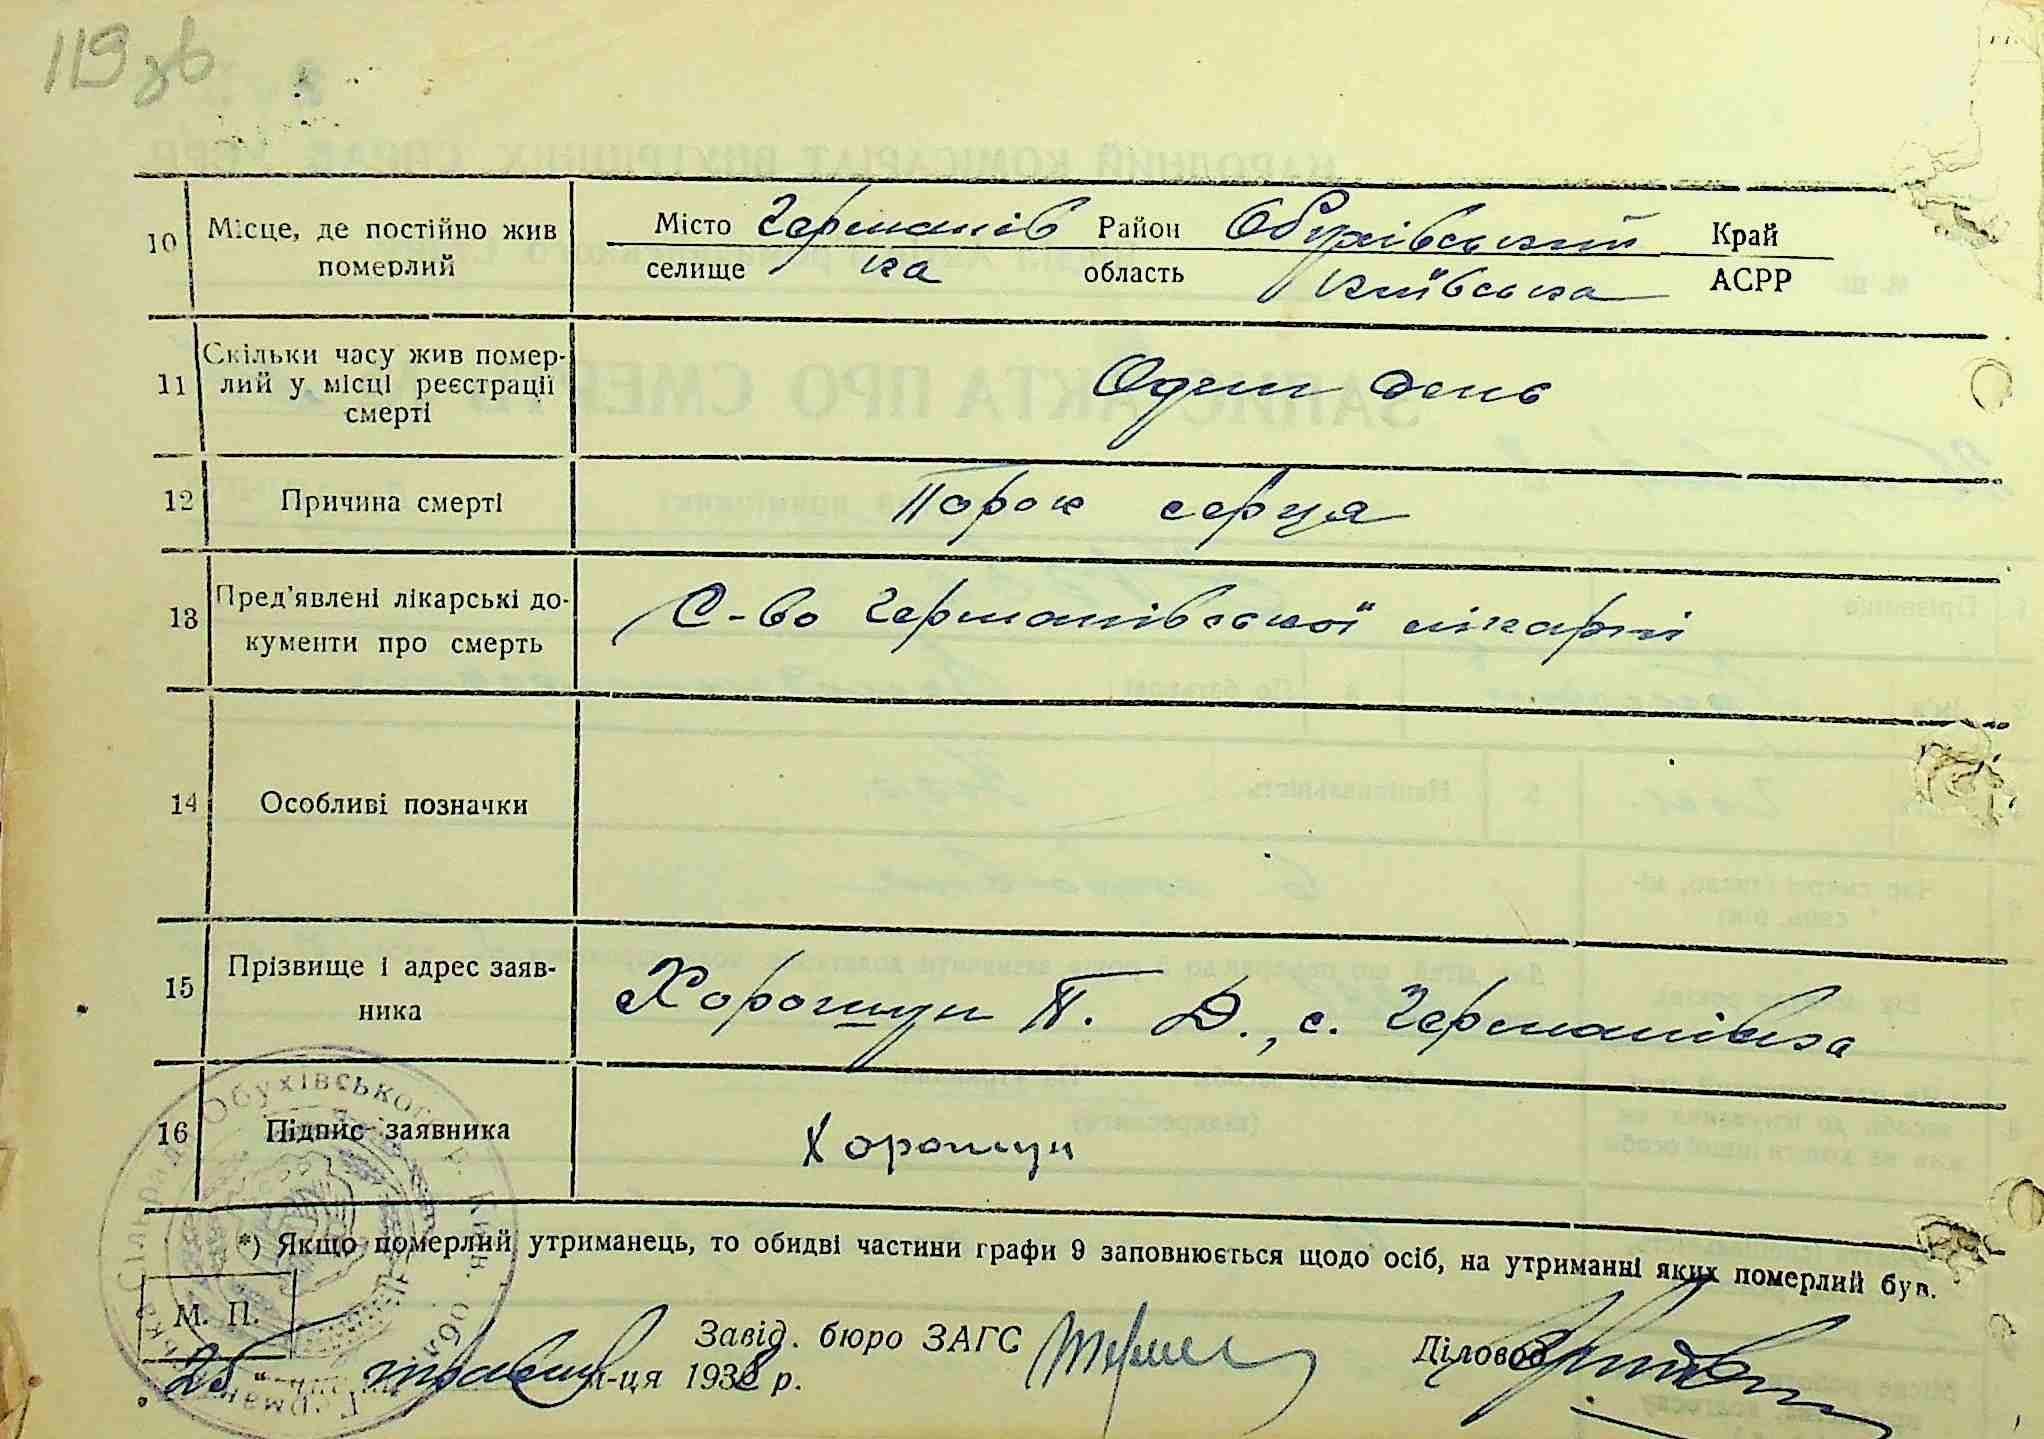 119 зв
10 Місце, де постійно жив померлий
Місто Германів Район Обухівський Край
селище ка область Київська АСРР
11 Скільки часу жив помер-
лий у місці реєстрації
смерті
Один день
12 Причина смерті Порок серця
13 Пред'явлені лікарські до-
кументи про смерть
С-во Германівської лікарні
14 Особливі позначки
15 Прізвище і адрес заяв-
ника
Хорошун П. Д., с. Германівка
16 Підпис заявника Хорошун
*) Якщо померлий утриманець, то обидві частини графи 9 заповнюється щодо осіб, на утриманні яких померлий був.
М. П.
Завід. бюро ЗАГС Діловод
25 " травня м-ця 1938 р.
Сільрада Обухівського р. Київ. обл.